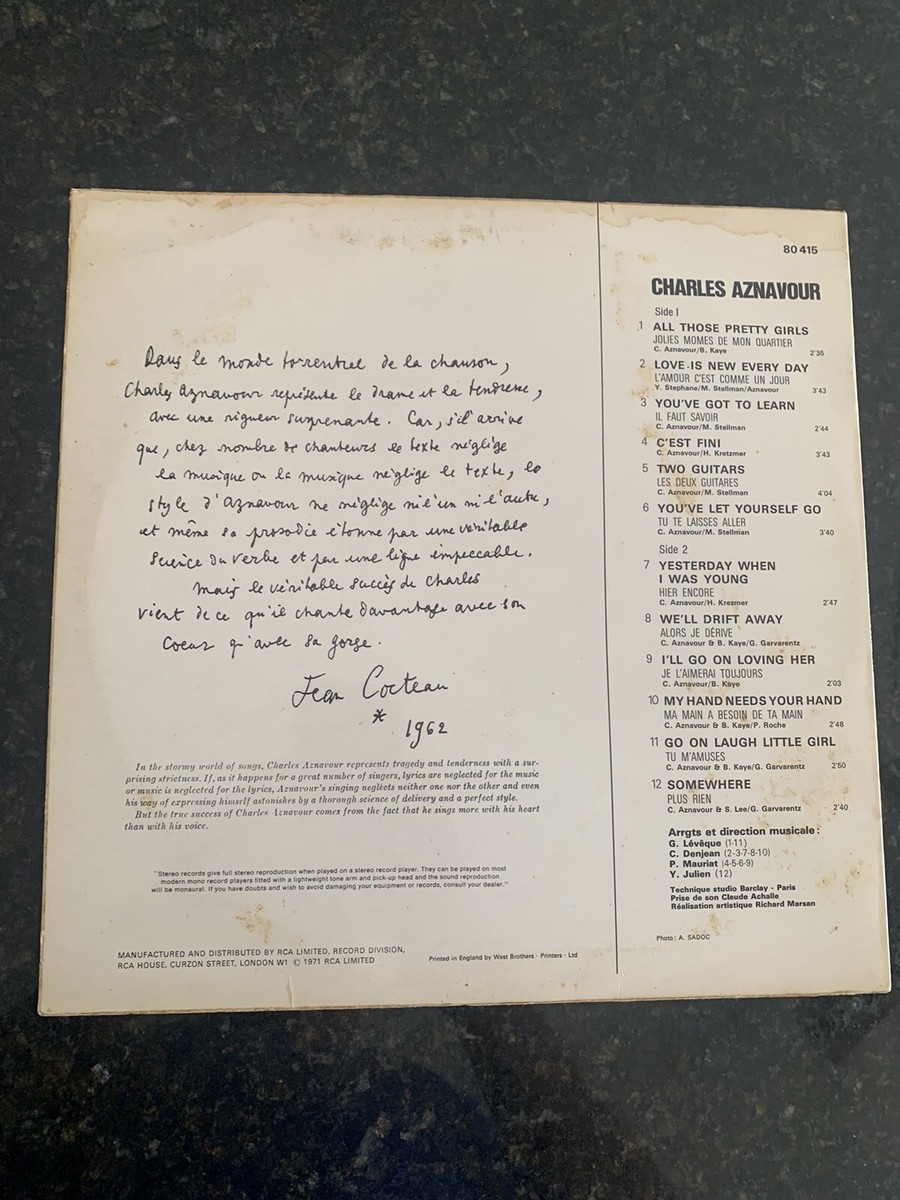 Dans le monde torrentiel de la chanson,
Charles Aznavour représente le drame et la tendresse,
avec une rigueur surprenante. Car, s'il arrive
que, chez nombre de chanteurs le texte néglige
la musique ou la musique néglige le texte, le
style d'Aznavour ne néglige ni l'un ni l'autre,
et même sa prosodie étonne par une véritable
science du verbe et par une ligne impeccable.
Mais le véritable succès de Charles
vient de ce qu'il chante davantage avec son
coeur qu'avec sa gorge.
Jean Cocteau
*
1962
In the stormy world of songs, Charles Aznavour represents tragedy and tenderness with a sur-
prising strictness. If, as it happens for a great number of singers, lyrics are neglected for the music
or music is neglected for the lyrics, Aznavour's singing neglects neither one nor the other and even
his way of expressing himself astonishes by a thorough science of delivery and a perfect style.
But the true success of Charles Aznavour comes from the fact that he sings more with his heart
than with his voice.
"Stereo records give full stereo reproduction when played on a stereo record player. They can be played on most
modern mono record players fitted with a lightweight tone arm and pick-up head and the sound reproduction
will be monaural. If you have doubts and wish to avoid damaging your equipment or records, consult your dealer."
MANUFACTURED AND DISTRIBUTED BY RCA LIMITED, RECORD DIVISION,
RCA HOUSE, CURZON STREET, LONDON W1 © 1971 RCA LIMITED
Printed in England by West Brothers · Printers · Ltd
80 415
CHARLES AZNAVOUR
Side I
1 ALL THOSE PRETTY GIRLS
JOLIES MOMES DE MON QUARTIER
C. Aznavour/B. Kaye 2'35
2 LOVE IS NEW EVERY DAY
L'AMOUR C'EST COMME UN JOUR
Y. Stephane/M. Stellman/Aznavour 3'43
3 YOU'VE GOT TO LEARN
IL FAUT SAVOIR
C. Aznavour/M. Stellman 2'44
4 C'EST FINI
C. Aznavour/H. Kretzmer 3'43
5 TWO GUITARS
LES DEUX GUITARES
C. Aznavour/M. Stellman 4'04
6 YOU'VE LET YOURSELF GO
TU TE LAISSES ALLER
C. Aznavour/M. Stellman 3'40
Side 2
7 YESTERDAY WHEN
I WAS YOUNG
HIER ENCORE
C. Aznavour/H. Krezmer 2'47
8 WE'LL DRIFT AWAY
ALORS JE DÉRIVE
C. Aznavour & B. Kaye/G. Garvarentz
9 I'LL GO ON LOVING HER
JE L'AIMERAI TOUJOURS
C. Aznavour/B. Kaye 2'03
10 MY HAND NEEDS YOUR HAND
MA MAIN A BESOIN DE TA MAIN
C. Aznavour & B. Kaye/P. Roche 2'48
11 GO ON LAUGH LITTLE GIRL
TU M'AMUSES
C. Aznavour & B. Kaye/G. Garvarentz 2'50
12 SOMEWHERE
PLUS RIEN
C. Aznavour & S. Lee/G. Garvarentz 2'40
Arrgts et direction musicale :
G. Lévêque (1-11)
C. Denjean (2-3-7-8-10)
P. Mauriat (4-5-6-9)
Y. Julien (12)
Technique studio Barclay - Paris
Prise de son Claude Achalle
Réalisation artistique Richard Marsan
Photo: A. SADOC